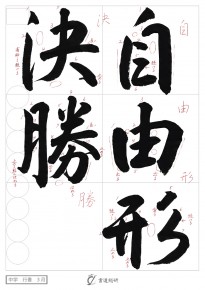 自由形
決勝
自
由
形
決
勝
中学 行書 5月
書道総研